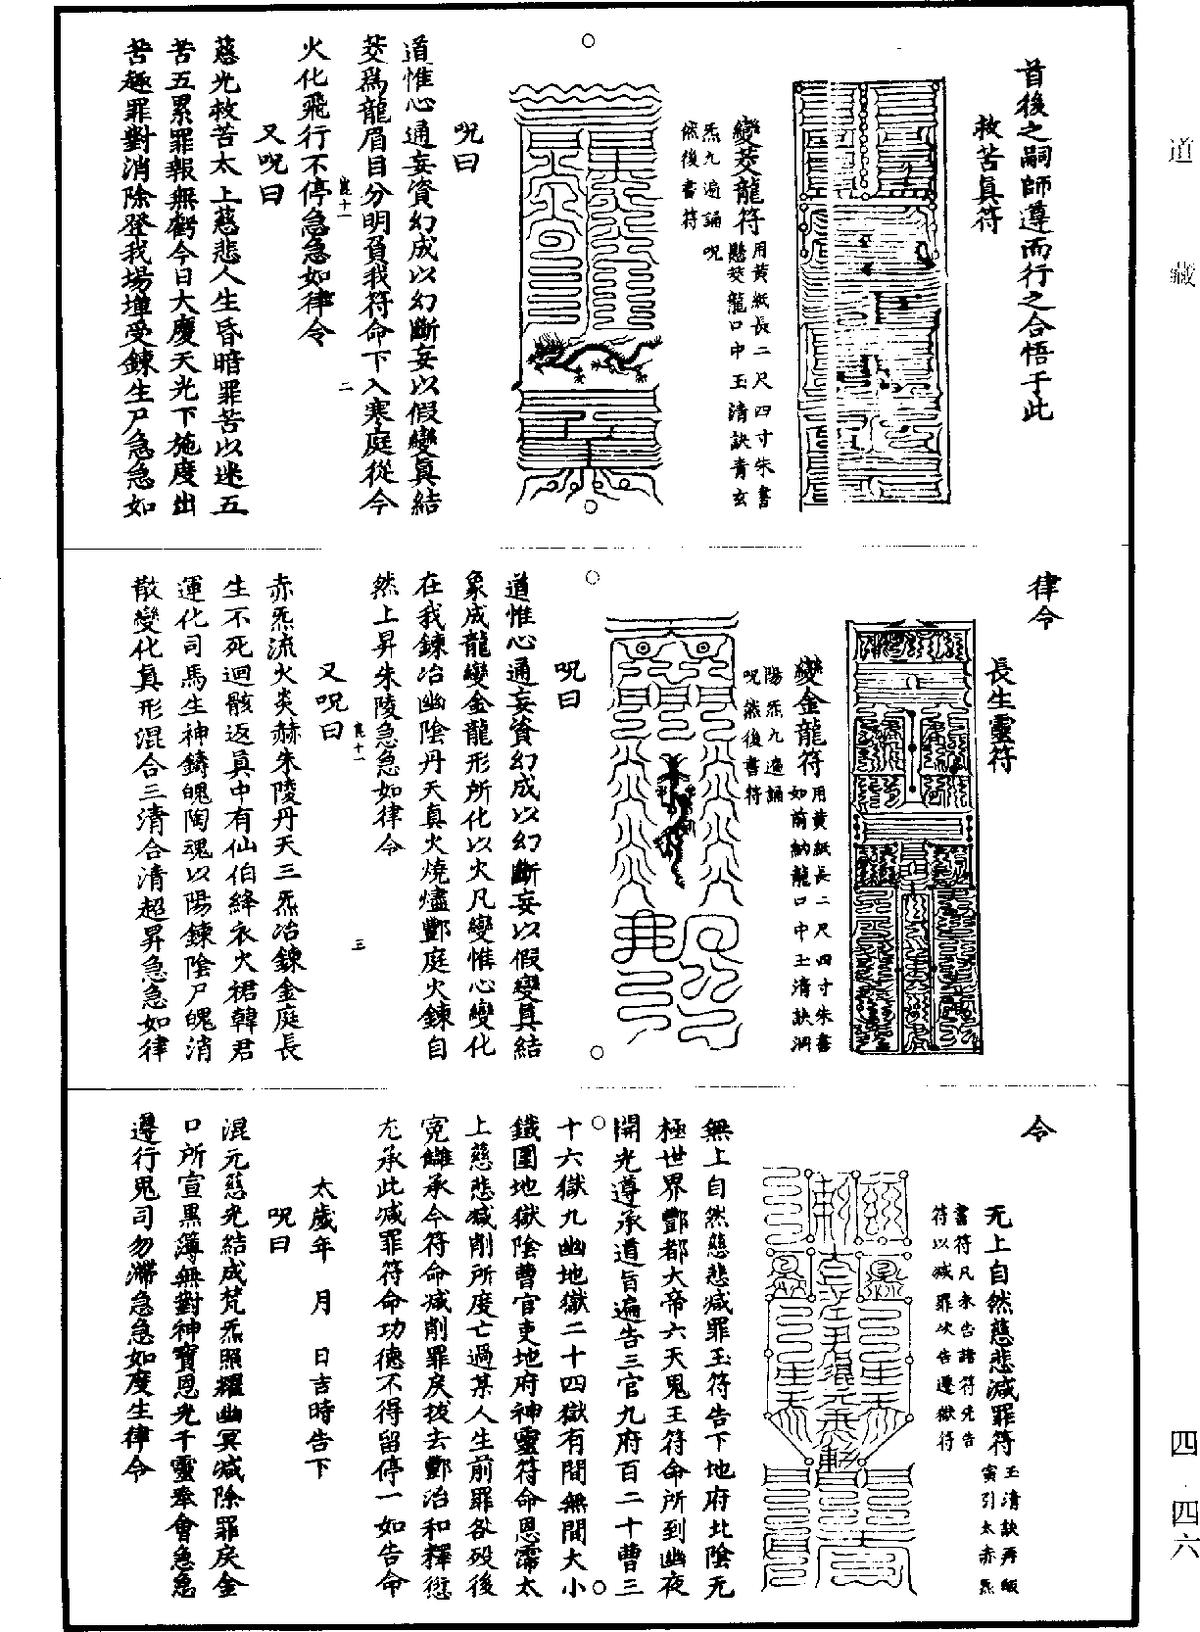 道藏
四·四六
首後之嗣師遵而行之合悟于此
救苦真符
變茭龍符
用黃紙長二尺四寸朱書
懸茭龍口中玉清訣青玄
炁九遍誦呪
然後書符
呪曰
道惟心通妄資幻成以幻斷妄以假變真結
茭為龍眉目分明負我符命下入寒庭從今
火化飛行不停急急如律令
崑十一
二
又呪曰
慈光救苦太上慈悲人生昏暗罪苦以迷五
苦五累罪報無虧今日大慶天光下施度出
苦趣罪對消除登我場壇受鍊生尸急急如
律令
長生靈符
變金龍符
用黃紙長二尺四寸朱書
如前納龍口中玉清訣洞
陽炁九遍誦
呪然後書符
呪曰
道惟心通妄資幻成以幻斷妄以假變真結
象成龍變金龍形所化以火凡變惟心變化
在我鍊冶幽陰丹天真火燒燼酆庭火鍊自
然上昇朱陵急急如律令
崑十一
三
又呪曰
赤炁流火炎赫朱陵丹天三炁冶鍊金庭長
生不死迴骸返真中有仙伯絳衣火裙韓君
運化司馬生神鑄魄陶魂以陽鍊陰尸魄消
散變化真形混合三清合清超昇急急如律
令
无上自然慈悲減罪符
玉清訣再皈
寅引太赤炁
書符凡未告諸符先告
符以減罪次告遷獄符
無上自然慈悲減罪玉符告下地府北陰无
極世界酆都大帝六天鬼王符命所到幽夜
開光遵承道旨遍告三官九府百二十曹三
十六獄九幽地獄二十四獄有間無間大小
鐵圍地獄陰曹官吏地府神靈符命恩霈太
上慈悲減削所度亡過某人生前罪咎歿後
冤讎承今符命減削罪戾拔去酆治和釋愆
尤承此減罪符命功德不得留停一如告命
太歲年　月　日吉時告下
呪曰
混元慈光結成梵炁照耀幽冥減除罪戾金
口所宣黑簿無對神寶恩光千靈奉會急急
遵行鬼司勿滯急急如度生律令